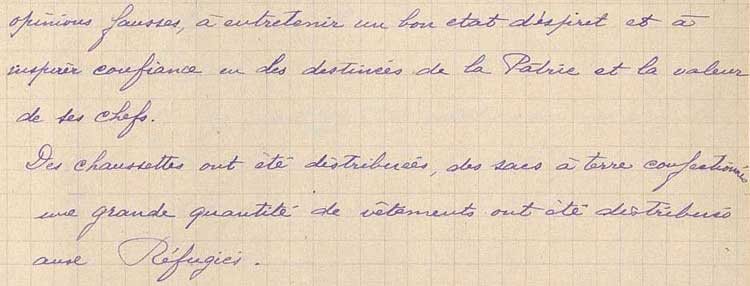 opinions fausses, à entretenir un bon etat d'espiret et à
inspirer confiance en les destinées de la Patrie et la valeur
de ses chefs.
Des chaussettes ont été distribuées, des sacs à terre confectionnés
une grande quantité de vêtements ont été distribués
aux Réfugiés.